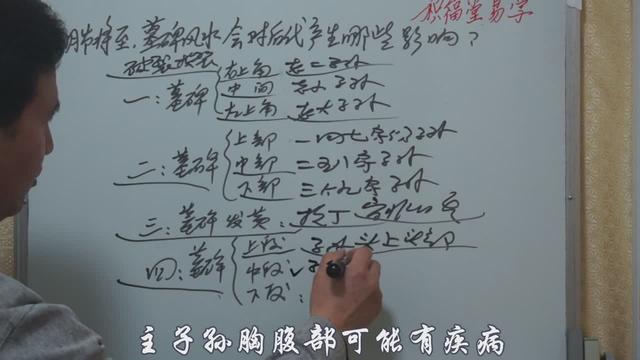 积福堂易学
明节将至，墓碑风水，会对后代产生哪些影响？
破裂
一：墓碑
右上角 在二子孙
中间
左上角 在大子孙
二：墓碑
上部 一四七字子孙
中部 二五八字子孙
下部 三六九字子孙
三：墓碑发黄：损丁
四：墓碑
上段 子孙 头上
中段 子
下段：
主子孙胸腹部可能有疾病